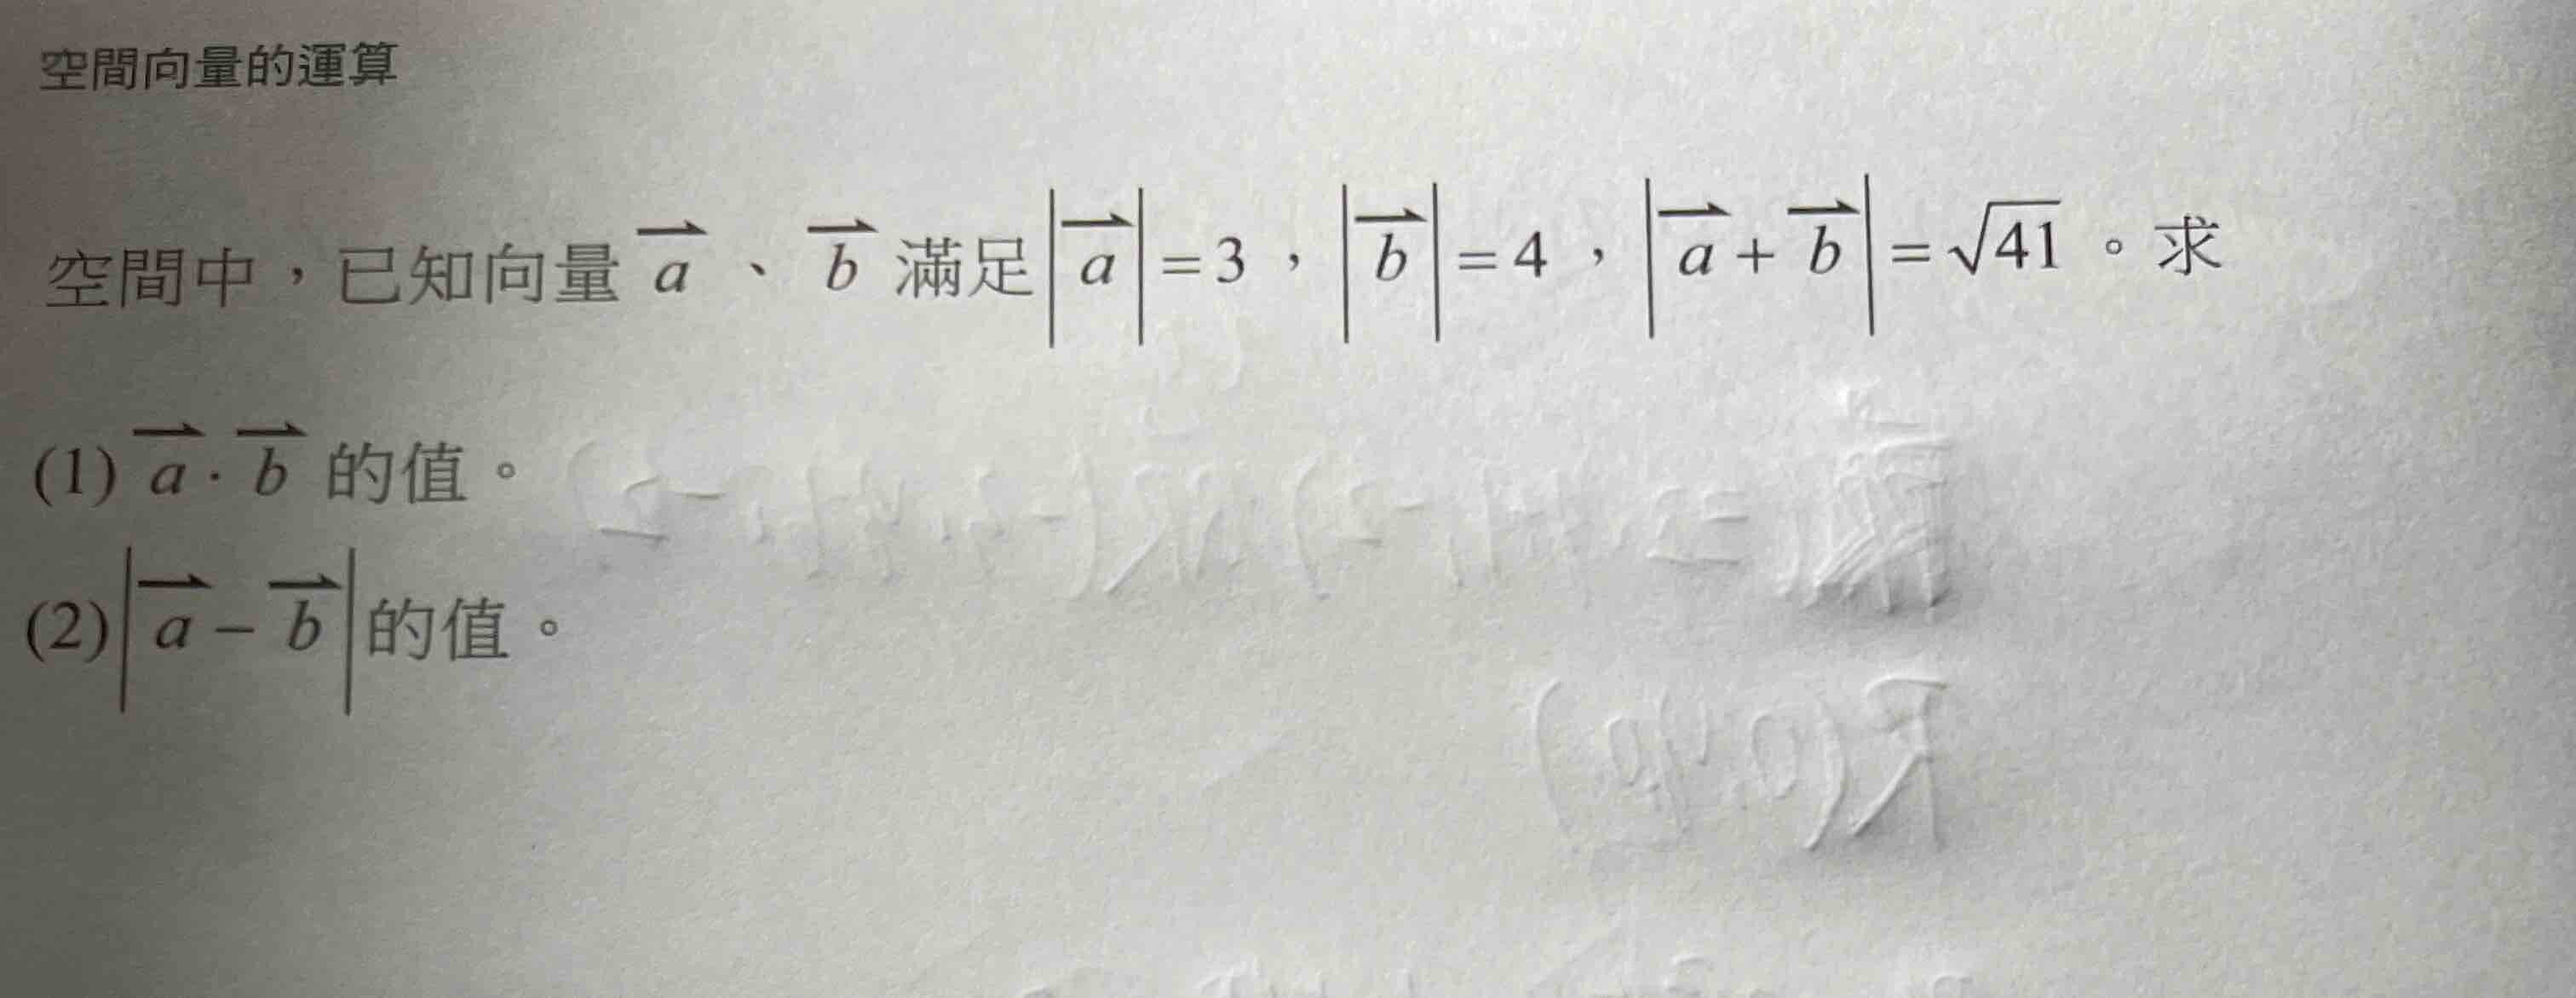 空間向量的運算
空間中，已知向量 $\overrightarrow{a}$、$\overrightarrow{b}$ 滿足 $|\overrightarrow{a}|=3$，$|\overrightarrow{b}|=4$，$|\overrightarrow{a}+\overrightarrow{b}|=\sqrt{41}$。求
(1) $\overrightarrow{a}\cdot\overrightarrow{b}$ 的值。
(2) $|\overrightarrow{a}-\overrightarrow{b}|$ 的值。